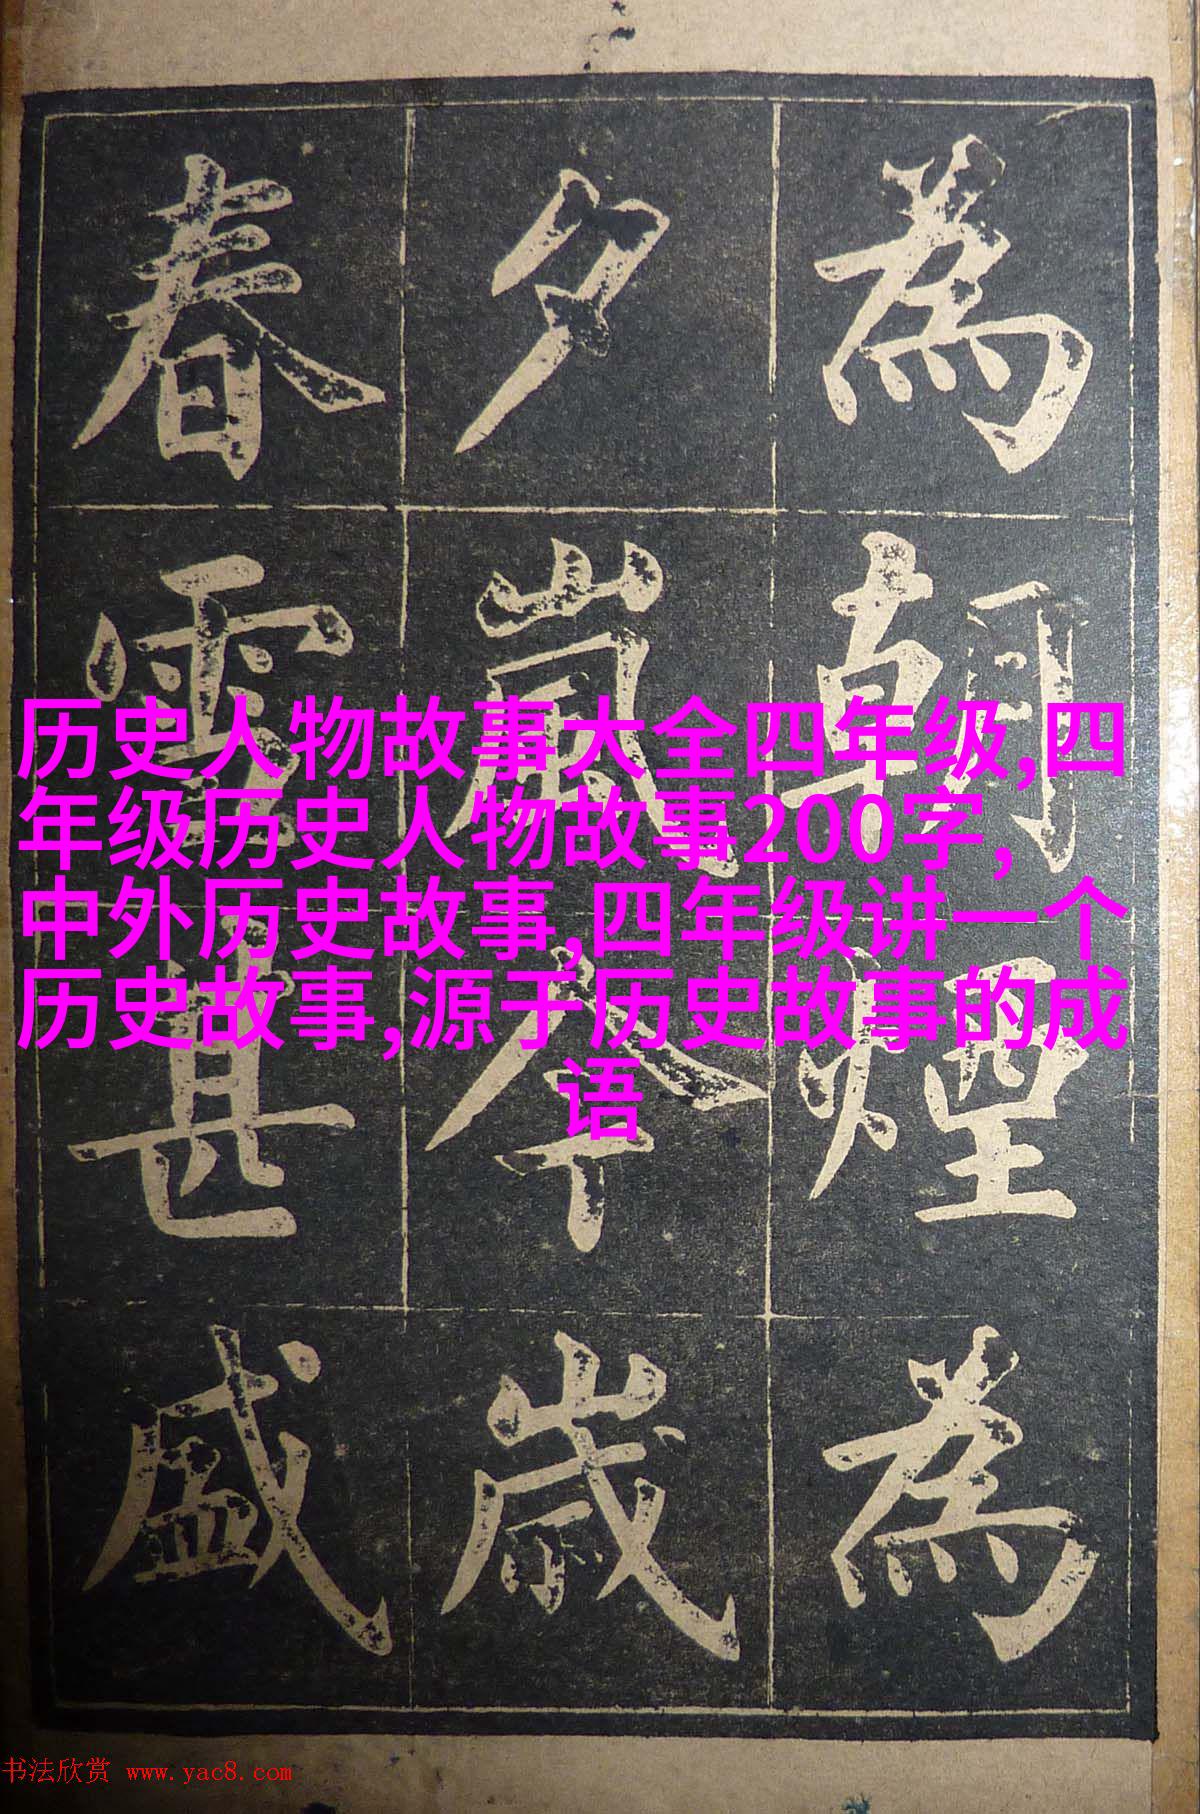 為朝煙為
夕嵐今歲
春雪甚盛
历史人物故事大全四年级,四
年级历史人物故事200字,
中外历史故事,四年级讲一个
历史故事,源于历史故事的成
语
书法欣赏 www.yac8.com